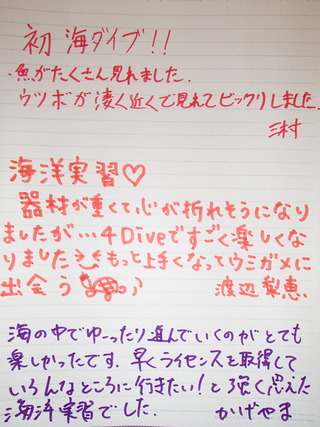 初 海ダイブ!!
・魚がたくさん見れました.
ウツボが凄く近くで見れてビックリしました.
三村
海洋実習♡
器材が重くて心が折れそうになり
ましたが…4Diveですごく楽しくな
りました もっと上手くなってウミガメに
出会う
渡辺梨恵.
海の中でゆーったり進んでいくのがとても
楽しかったです. 早くライセンスを取得して
いろんなところに行きたい!と強く思えた
海洋実習でした. かげやま